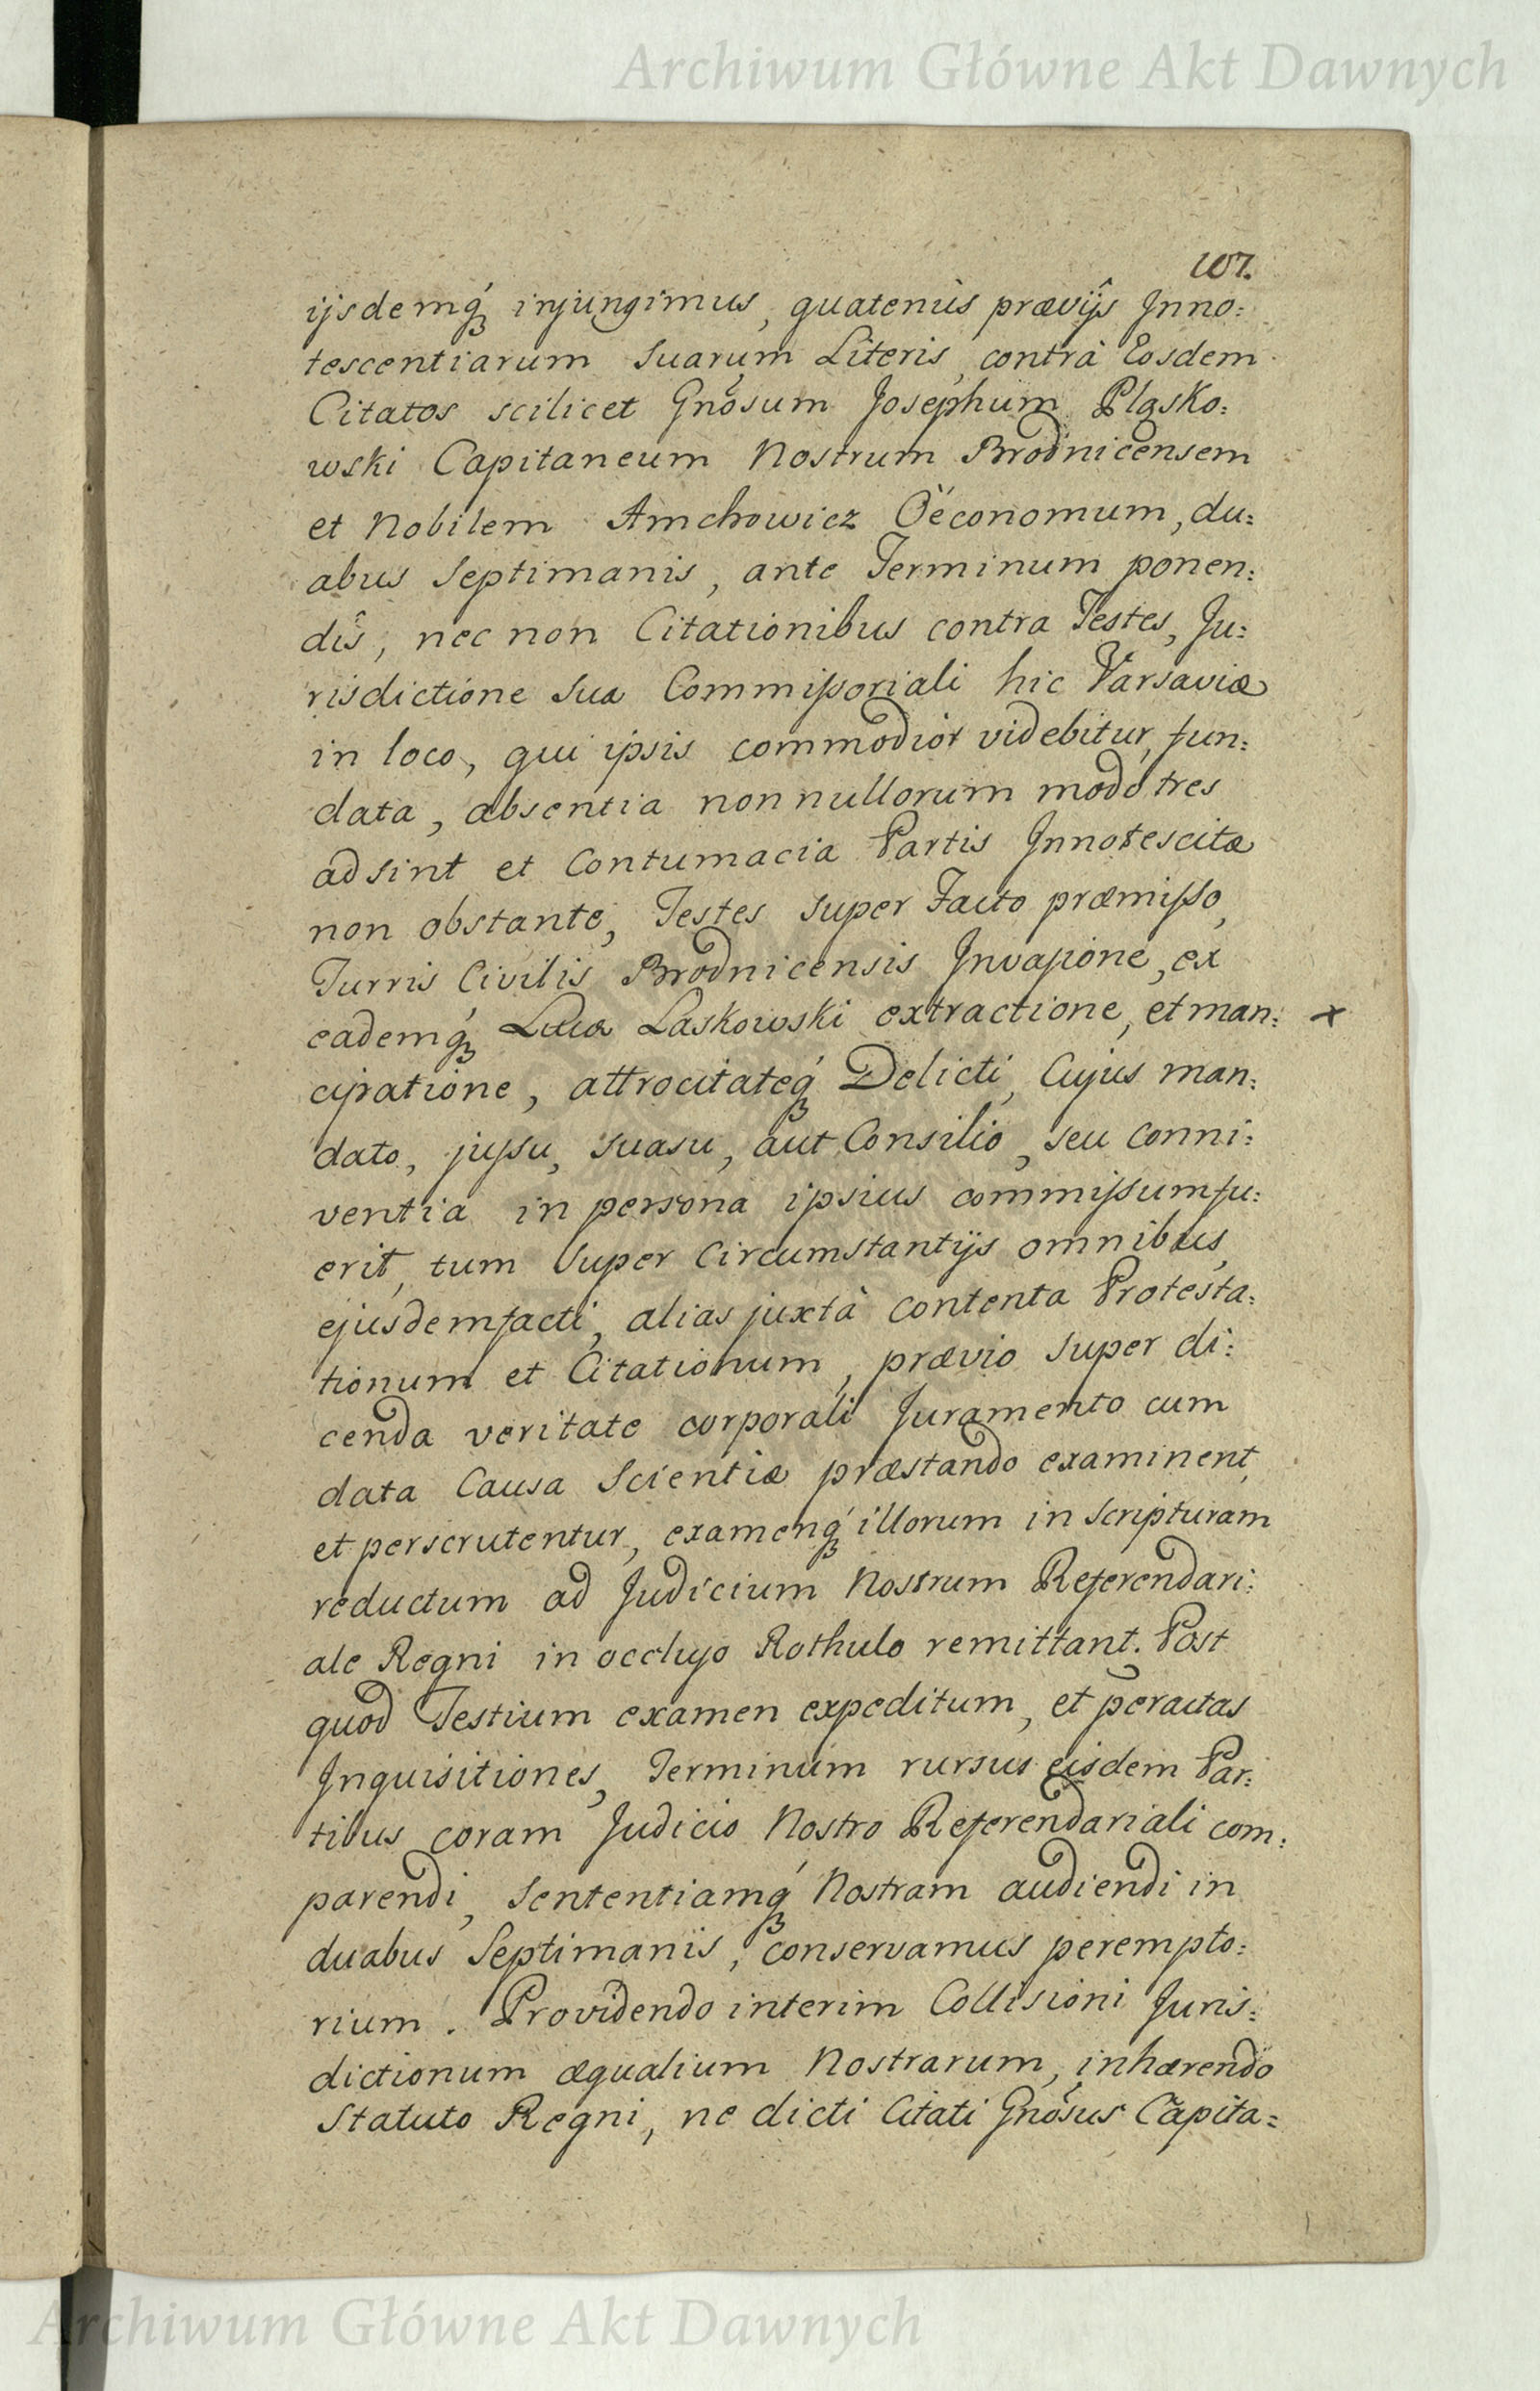 Archiwum Główne Akt Dawnych
107.
ijsdemq́ʒ injungimus, quatenùs prævijŝ Inno:
tescentiarum suarum Literis, contrà Eosdem
Citatos scilicet Gnõsum Josephum Plasko:
wski Capitaneum Nostrum Brodnicensem
et Nobilem Amchowicz Oëconomum, du:
abus Septimanis, ante Terminum ponen:
dîs, nec non Citationibus contra Testes, Ju:
risdictione sua Commißoriali hic Varsaviæ
in loco, qui ipsis commodiòr videbitur, fun:
data, absentia nonnullorum modò tres
adsint et Contumacia Partis Innotescitæ
non obstante, Testes super Facto præmißo,
Turris Civilis Brodnicensis Invaßione, ex
eademq́ʒ Lucæ Laskowski extractione, et man: x
cipatione, attrocitateq́ʒ Delicti, Cujus man:
dato, jußu, suasu, aut Consilio, seu conni:
ventia in persona ipsius commißum fu:
erit, tum super Circumstantijs omnibus,
ejusdem facti, alias juxtà contenta Protesta:
tionum et Citationum, prævio super di:
cenda veritate corporali Juramento cum
data Causa Scientiæ præstando examinent,
et perscrutentur, examenq́ʒ illorum in Scripturam
reductum ad Judicium Nostrum Referendari:
ale Regni in occluso Rothulo remittant. Post
quod Testium examen expeditum, et peractas
Inquisitiones, Terminum rursus eisdem Par:
tibus coram Judicio Nostro Referendariali com:
parendi, Sententiamq́ʒ Nostram audiendi in
duabus Septimanis, conservamus perempto:
rium. Providendo interim Collisioni Juris:
dictionum æqualium Nostrarum, inhærendo
Statuto Regni, ne dicti Citati Gnõsus Capita:
Archiwum Główne Akt Dawnych